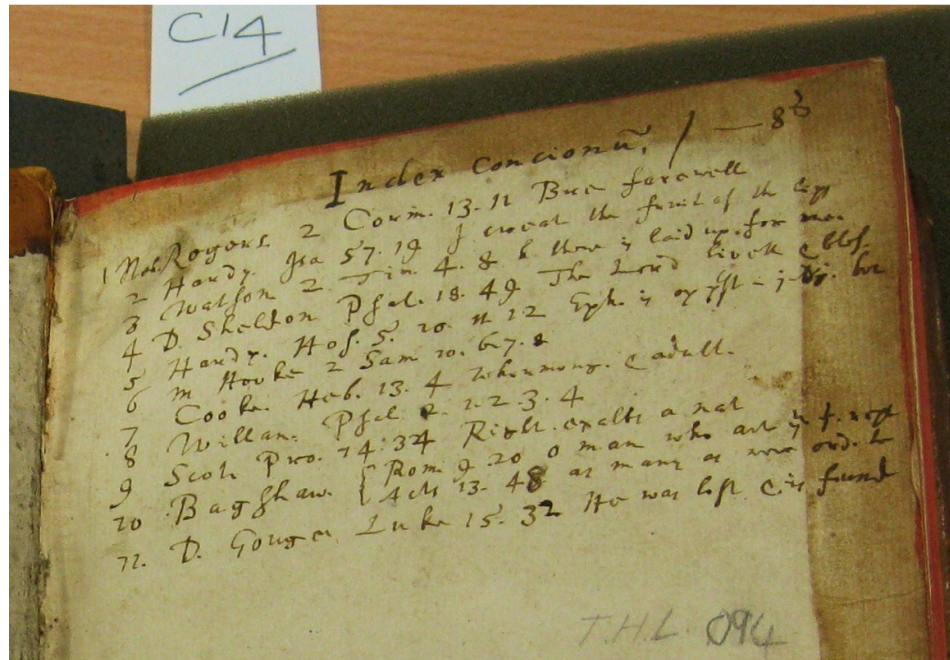 C14
Index concionū, / — 83
1 Neh. Rogers 2 Corin. 13. 11 Bre farewell
2 Hardy. Isa 57. 19 I creat the fruit of the lipp
3 Watson 2 Tim 4. 8 h. there is laid up. for me.
4 D. Skelton Psal. 18. 49 The Lord liveth & bles.
5 Hardy. Hos. 5. 10. 11 12 Eph. is opp
6 m Hooke 2 Sam 10. 6. 7. 8
7 Cooke. Heb. 13. 4 Whormong. & adult.
8 Willan. Psal 2. 1. 2. 3. 4
9 Scot. Pro. 14. 34 Right. exalts a nat
10 Bagshaw. { Rom. 9. 20 o man who art
Acts 13. 48 as many as were ord. to
11. D. Gouge. Luke 15. 32 He was lost & is found
T.H.L. 094